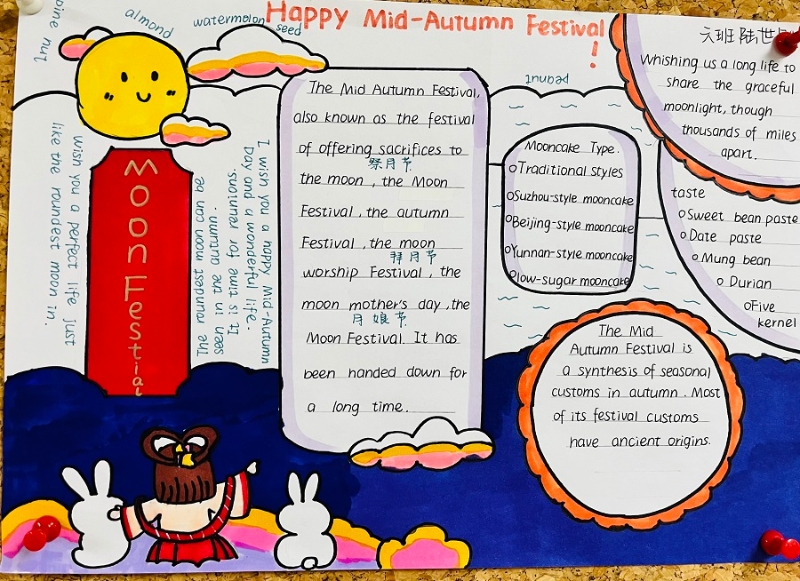 Happy Mid-Autumn Festival
!
pine nut
almond
watermelon seed
peanut
Moon Festial
Wish you a perfect life just
like the roundest moon in.
I wish you a happy Mid-Autumn
Day and a wonderful life.
It is time for farmers'
The roundest moon can be
seen in the autumn.
The Mid Autumn Festival,
also known as the festival
of offering sacrifices to
祭月节
the moon, the Moon
Festival, the autumn
Festival, the moon
拜月节
worship Festival, the
moon mother's day, the
月娘节
Moon Festival. It has
been handed down for
a long time.
Mooncake Type.
Traditional styles
Suzhou-style mooncake
Beijing-style mooncake
Yunnan-style mooncake
low-sugar mooncake
六班 陆世
Whishing us a long life to
share the graceful
moonlight, though
thousands of miles
apart.
taste
Sweet bean paste
Date paste
Mung bean
Durian
Five
kernel
The Mid
Autumn Festival is
a synthesis of seasonal
customs in autumn. Most
of its festival customs
have ancient origins.